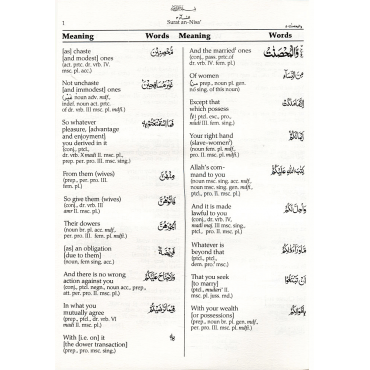 1
Surat an-Nisa'
Meaning Words Meaning Words
And the married¹ ones وَالْمُحْصَنٰتُ
(conj., pass. prtc. of
dr. vrb. IV. fem. pl.)
Of women مِنَ النِّسَآءِ
prep., noun pl. gen.
no sing. of this noun)
Except that إِلَّا مَا مَلَكَتْ
which possess
ptcl. esc., pro.,
madi III fem. sing.)
Your right hand أَيْمَانُكُمْ
(slave-women²)
(noun fem. pl. mdf.,
pro. II. msc. pl. mdff.)
Allah's com- كِتٰبَ اللّٰهِ عَلَيْكُمْ
mand to you
(noun msc. sing. acc. mdf.,
noun msc. sing. gen. mdff.,
ptcl., pro. II. msc. pl.)
And it is made وَأُحِلَّ لَكُمْ
lawful to you
(conj., dr. vrb. IV.
madi maj. III msc. sing.,
ptcl., pro. II. msc. pl.)
Whatever is مَّا وَرَآءَ ذٰلِكُمْ
beyond that
(ptcl., ptcl.,
dem. pro.³ msc.)
That you seek أَنْ تَبْتَغُوا
[to marry]
(ptcl., mudari' II.
msc. pl. juss. md.)
With your wealth بِأَمْوَالِكُمْ
[or possessions]
(prep., noun br. pl. gen. mdf.,
per. pro. III. msc. pl. mdff.)
[as] chaste مُّحْصِنِينَ
[and modest] ones
(act. prtc. dr. vrb. IV.
msc. pl. acc.)
Not unchaste غَيْرَ مُسَافِحِينَ
[and immodest] ones
(غَيْرَ noun adv. mdf.,
indef. noun act. prtc.
of dr. vrb. III msc. pl. mdff.)
So whatever فَمَا اسْتَمْتَعْتُمْ بِهٖ
pleasure, [advantage
and enjoyment],
you derived in it
(conj., ptcl.,
dr. vrb. X madi II. msc. pl.,
prep. per. pro. III. msc. sing.)
From them (wives) مِنْهُنَّ
(prep., per. pro. III.
fem. pl.)
So give them (wives) فَاٰتُوهُنَّ
(conj., dr. vrb. III
amr II. msc. pl.)
Their dowers أُجُورَهُنَّ
(noun br. pl. acc. mdf.,
per. pro. III. fem. pl. mdff.)
[as] an obligation فَرِيضَةً
[due to them]
(noun, fem sing, acc.)
And there is no wrong وَلَا جُنَاحَ عَلَيْكُمْ
action against you
(conj., ptcl. negtn., noun acc., prep.,
att. per. pro. II. msc. pl.)
In what you فِيمَا تَرَاضَيْتُمْ
mutually agree
(prep., ptcl., dr. vrb. VI
madi II. msc. pl.)
With [i.e. on] it بِهٖ
[the dower transaction]
(prep., pro. msc. sing.)